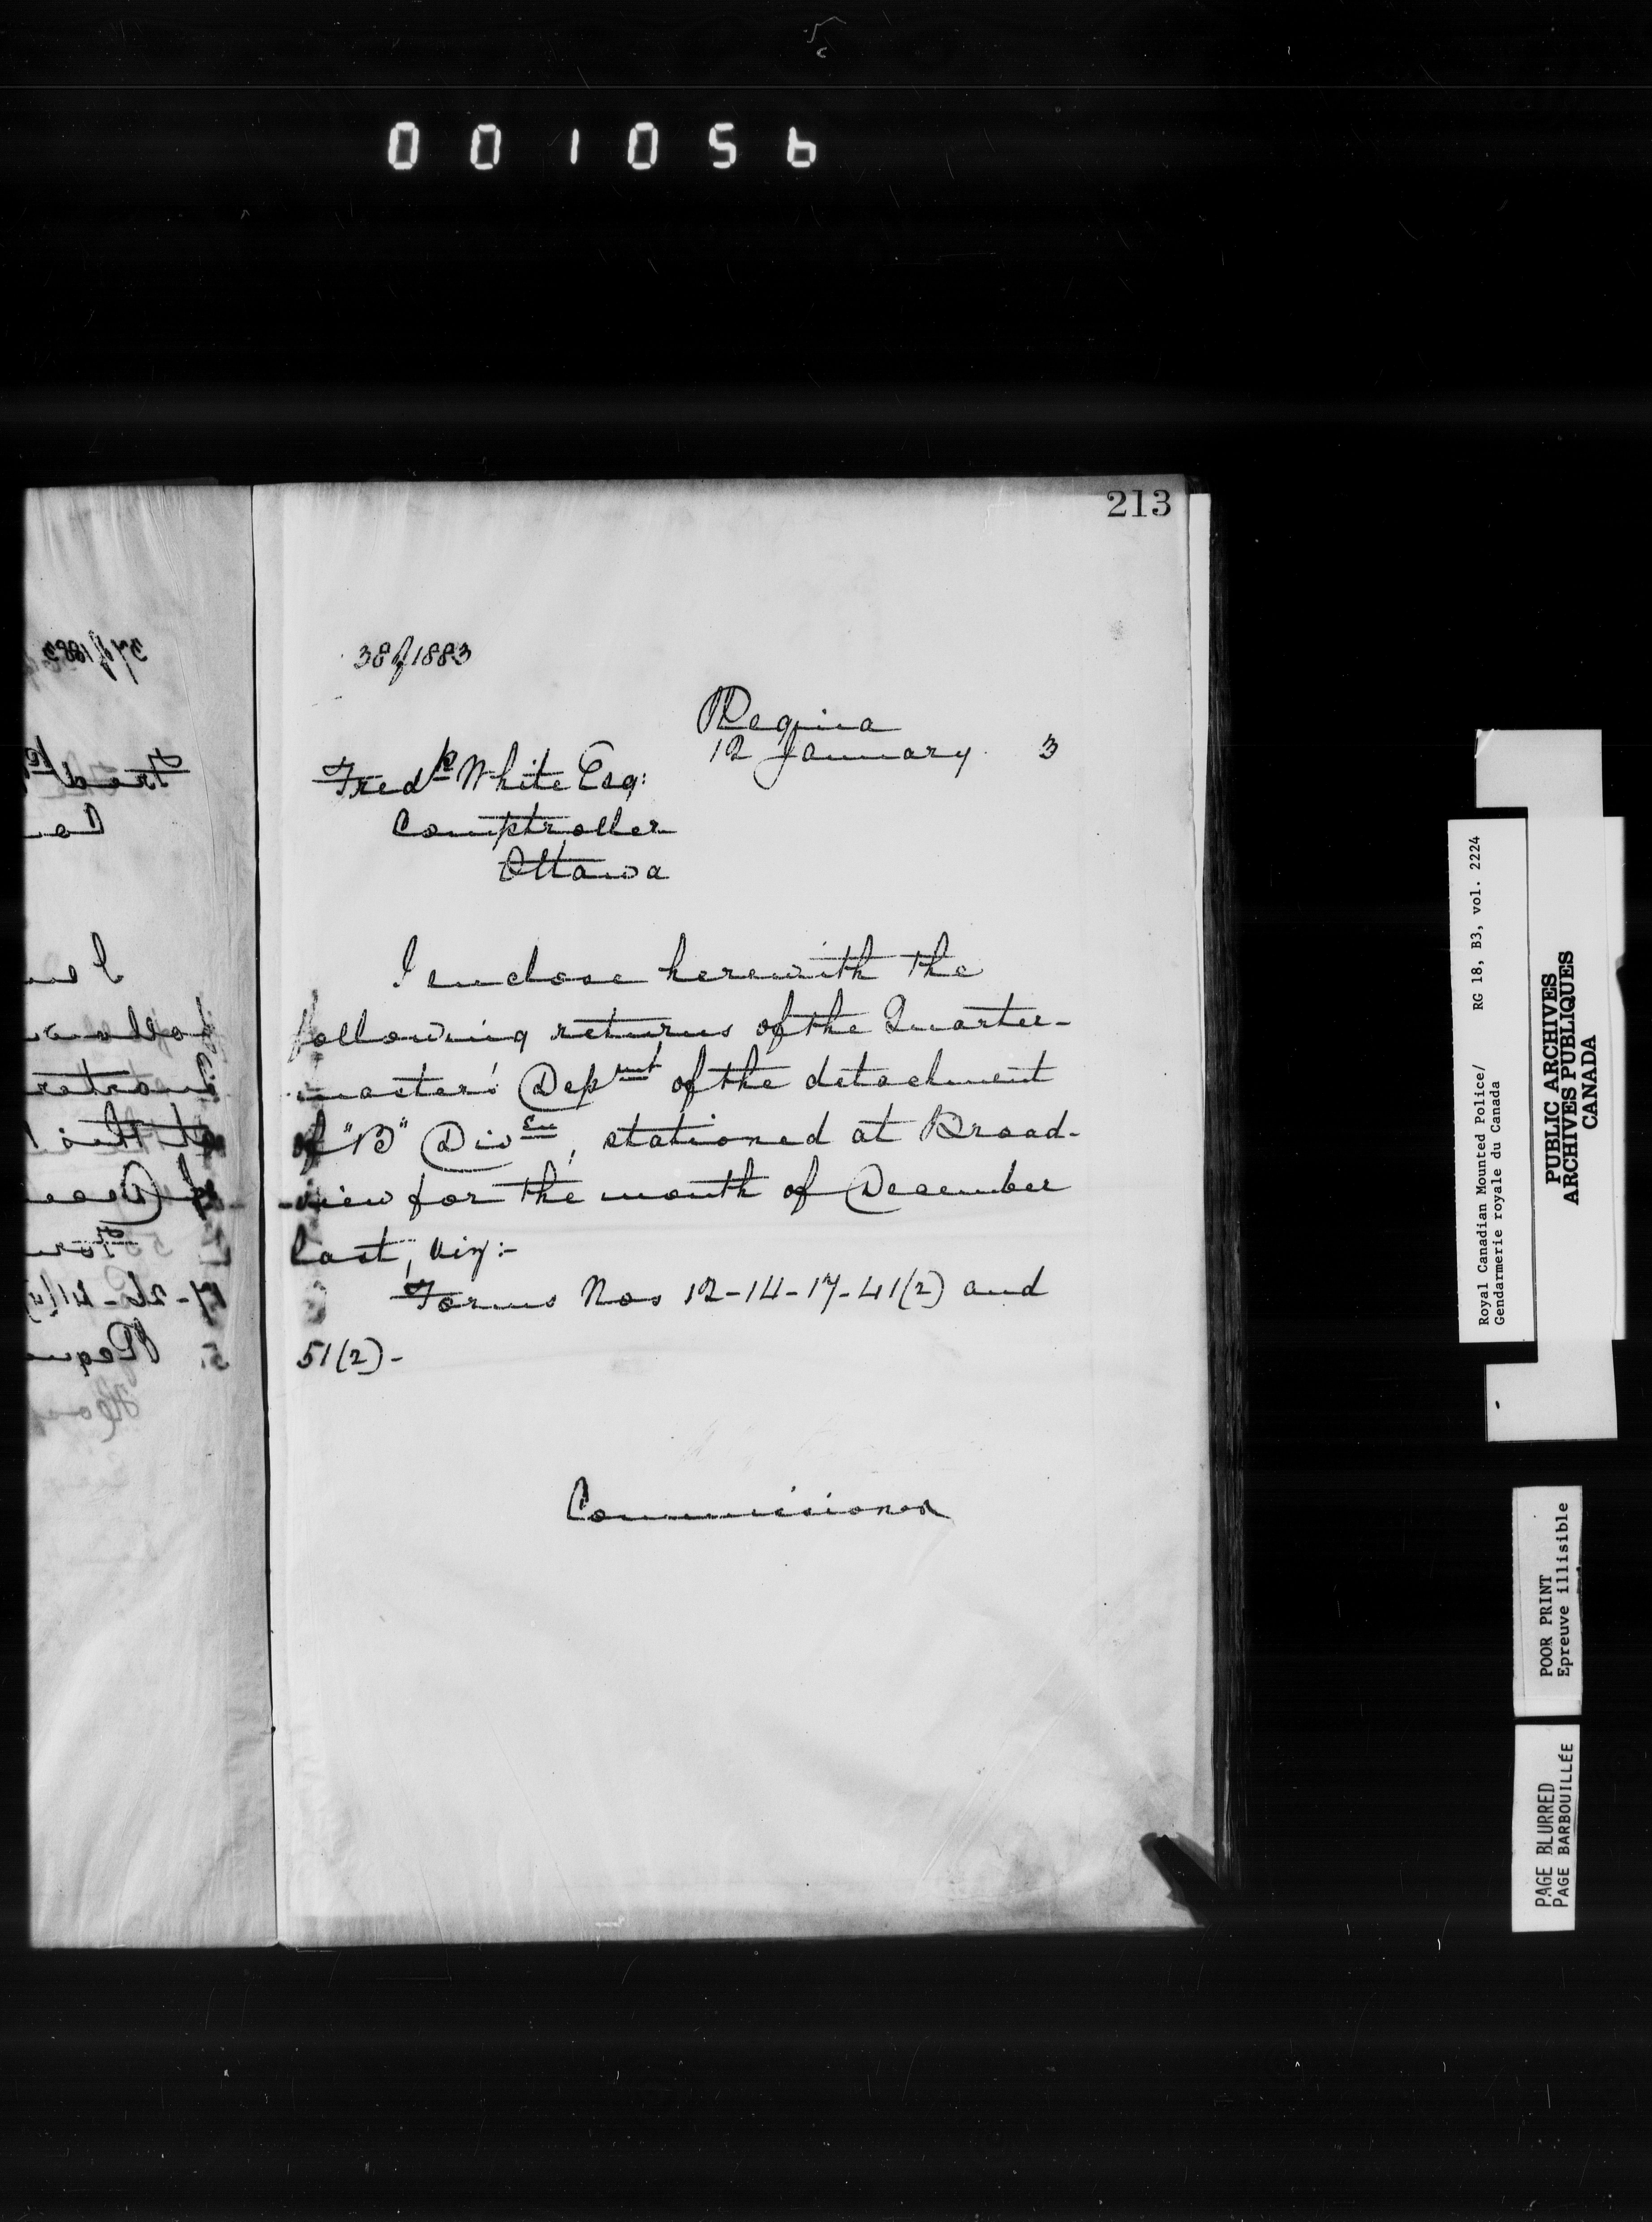 001056
213
38/1883
Regina
12 January 3
Fredk White Esq:
Comptroller
Ottawa
I enclose herewith the
following returns of the Quarter-
master's Depmt of the detachment
of "B" Divon, stationed at Broad-
-view for the month of December
last, viz:-
Forms Nos 12-14-17-41(2) and
51(2)-
Commissioner
Royal Canadian Mounted Police/ RG 18, B3, vol. 2224
Gendarmerie royale du Canada
PUBLIC ARCHIVES
ARCHIVES PUBLIQUES
CANADA
POOR PRINT
Epreuve illisible
PAGE BLURRED
PAGE BARBOUILLÉE